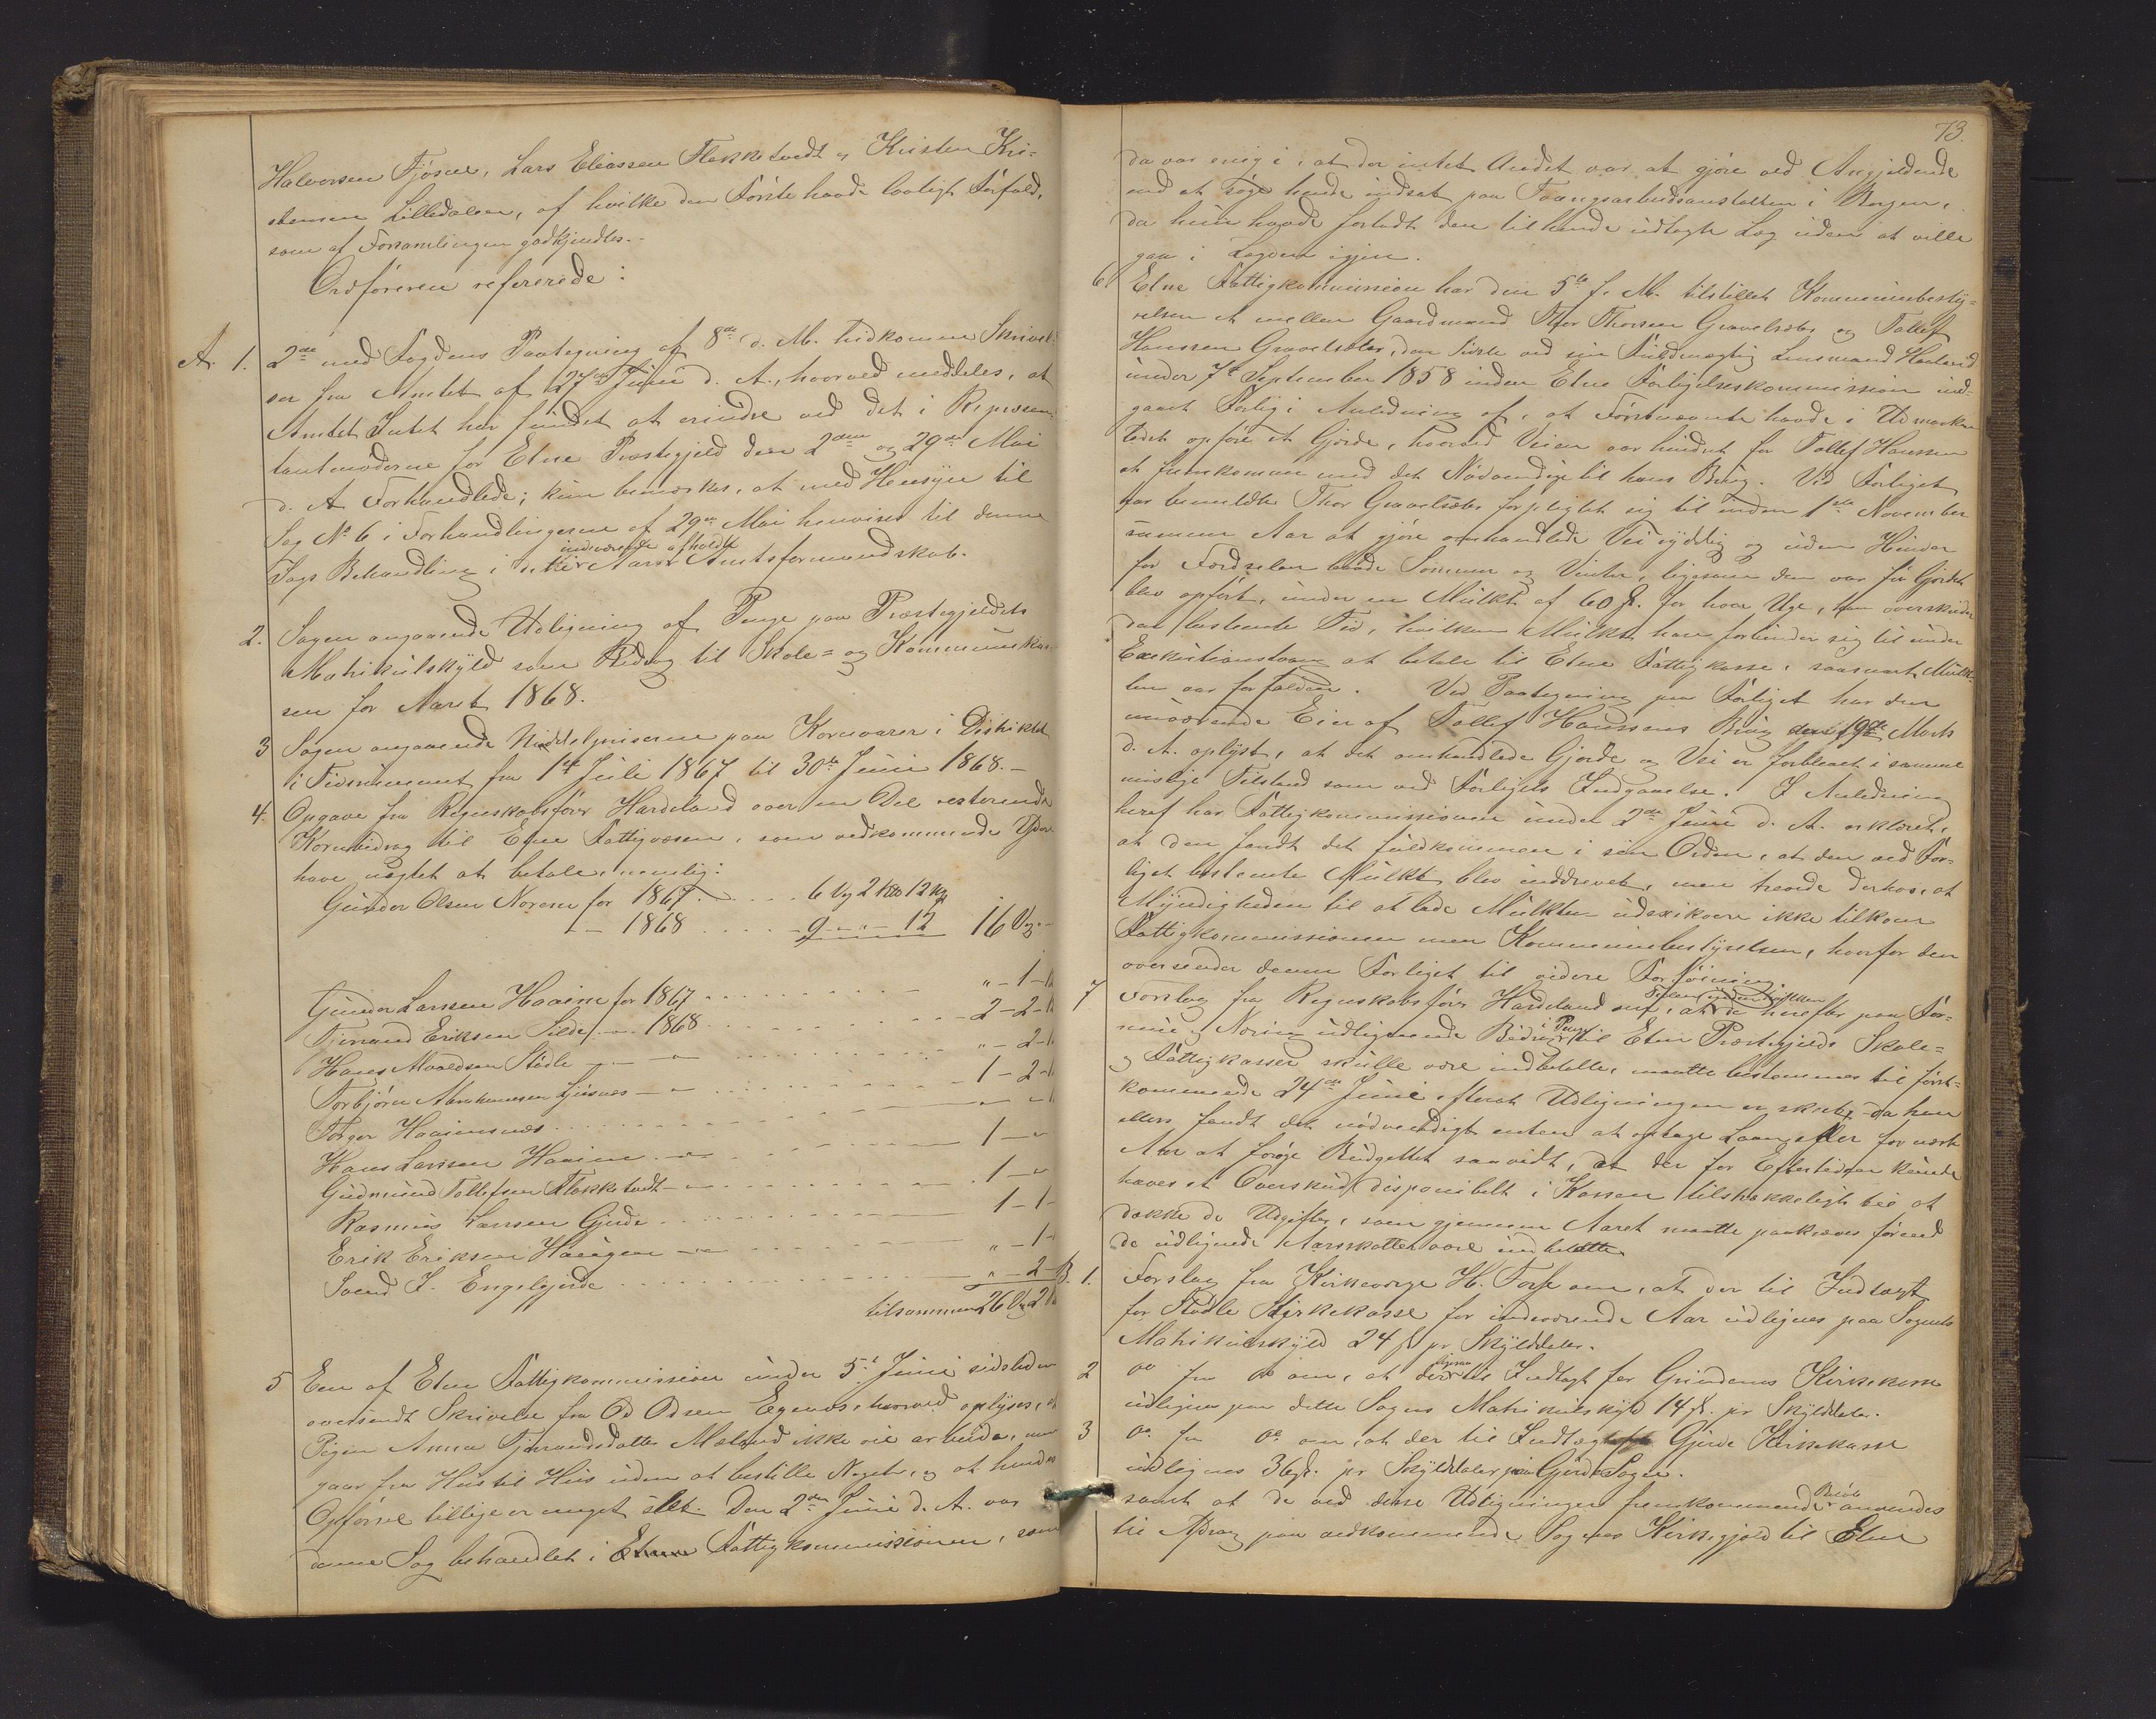 Halvorsen Fjøsne, Lars Eliassen Flekketvedt og Kristen Kri-
stensen Lilledalen, af hvilke den Første havde lovligt Forfald,
som af Forsamlingen godkjendtes.
Ordføreren refererede:
A. 1. 2de med Fogdens Paategning af 8de d. M. hidkomne Skrivel-
ser fra Amtet af 27de Juni d. A., hvorved meddeles, at
Amtet Intet har fundet at erindre ved det i Repræsen-
tantmøderne for Etne Præstegjeld den 2den og 29de Mai
d. A. Forhandlede; kun bemærkes, at med Hensyn til
Sag No 6 i Forhandlingerne af 29de Mai henvises til denne
indeværende afholdte
Sags Behandling i dette Aars Amtsformandskab.
2. Sagen angaaende Udligning af Penge paa Præstegjeldets
Matrikulskyld som Bidrag til Skole- og Kommunekas-
sen for Aaret 1868.
3 Sagen angaaende Middelpriserne paa Kornvarer i Distriktet
i Tidsrummet fra 1ste Juli 1867 til 30te Juni 1868.
4. Opgave fra Regnskabsfører Hardeland over en Del resterende
Kornbidrag til Etne Fattigvæsen, som vedkommende Ydere
have nægtet at betale, nemlig:
Gunder Olsen Norem for 1867 . . . . 6 Vg 2 12
- 1868 . . . . 9 - " - 12 16 Vg -
Gunder Larsen Haaim for 1867 . . . . " - 1 -
Tjerand Eriksen Silde - 1868 . . . . 2 - 2 -
Hans Stødle - - . . . . " - 2 -
Torbjørn Abrahamsen - . . . . 1 - 2 -
Torger Haaimsnes . . . .
Hans Larsen Haaim - . . . . 1 - "
Gudmund Tollefsen Flekketvedt - . . . . 1 - "
Rasmus Larsen Gjerde . . . . 1 - 1 -
Erik Eriksen Haugen - . . . . " - 1 -
Svend J. Engelgjerde . . . . " - 2 -
tilsammen 26 Vg 2
5 En af Etne Fattigkommission under 5te Juni sidstleden
oversendt Skrivelse fra Od Odsen Egenes, hvorved oplyses, at
Pigen Anna Tjerandsdatter Mæland ikke vil arbeide, men
gaar fra Hus til Hus uden at bestille Noget, og at hendes
Opførsel tillige er meget slet. Den 2den Juni d. A. var
denne Sag behandlet i Etne Fattigkommissionen, som
73.
da var enig i, at der intet Andet var at gjøre ved Angjeldende
end at søge hende indsat paa Tvangsarbeidsanstalten i Bergen,
da hun havde forladt den til hende udlagte Lag uden at ville
gaa i Lægden igjen.
6 Etne Fattigkommission har den 5te f. M. tilstillet Kommunebesty-
relsen et mellem Gaardmand Thor Thorsen Gravelsæter og Tollef
Hanssen Gravelsæter, den Sidste ved sin Fuldmægtig Lensmand Haaland
under 7de September 1858 inden Etne Forligelseskommission ind-
gaaet Forlig i Anledning af, at Førstnævnte havde i Udmarken
ladet opføre et Gjerde, hvorved Veien var hindret for Tollef Hanssen
at fremkomme med det Nødvendige til hans Brug. Ved Forliget
har bemeldte Thor Gravelsæter forpligtet sig til inden 1ste November
samme Aar at gjøre omhandlede Vei ryddig og uden Hinder
for Færdselen baade Sommer og Vinter, ligesom den var før Gjerdet
blev opført, under en Mulkt af 60 ß. for hver Uge, han overskrider
den bestemte Tid, hvilken Mulkt han forbinder sig til under
Exekutionstvang at betale til Etne Fattigkasse, saasnart Mulk-
ten var forfalden. Ved Paategning paa Forliget har den
nuværende Eier af Tollef Hanssens Brug den 19de Marts
d. A. oplyst, at det omhandlede Gjerde og Vei er forblevet i samme
mislige Tilstand som ved Forligets Indgaaelse. I Anledning
heraf har Fattigkommissionen under 2den Juni d. A. erklæret,
at den fandt det fuldkommen i sin Orden, at den ved For-
liget bestemte Mulkt blev inddrevet, men troede derhos, at
Myndigheden til at lade Mulkten udexikvere ikke tilkom
Fattigkommissionen men Kommunebestyrelsen, hvorfor den
oversender denne Forliget til videre Forføining.
7 Forslag fra Regnskabsfører Hardeland om, at de herefter paa For-
mue og Næring udlignende Bidrag i Penge til Etne Præstegjelds Skole-
og Fattigkasser skulle være indbetalte, maatte bestemmes til først-
kommende 24de Juni efterat Udligningen er skeet, da han
ellers fandt det nødvendigt enten at optage Laan, eller for næste
Aar at forøge Budgettet saavidt, at der for Eftertiden kunde
haves et Overskud disponibelt i Kassen tilstrækkeligt til at
dække de Udgifter, som gjennem Aaret maatte paakræves førend
de udlignede Aarsskatter vare indbetalte.
B. 1. Forslag fra Kirkeværge H. Torse om, at der til Indtægt
for Stødle Kirkekasse for indeværende Aar udlignes paa Sognets
Matrikulskyld 24 ß pr Skylddaler.
2 Do fra Do om, at der ligesaa til Indtægt for Grindenes Kirkekasse
udlignes paa dette Sogns Matrikulskyld 14 ß. pr Skylddaler.
3 Do fra Do om, at der til Indtægt for Gjerde Kirkekasse
udlignes 36 ß. pr Skylddaler paa Gjerde Sogn.
samt at de ved disse Udligninger fremkommende Beløb anvendes
til Afdrag paa vedkommende Sognes Kirkegjeld til Etne